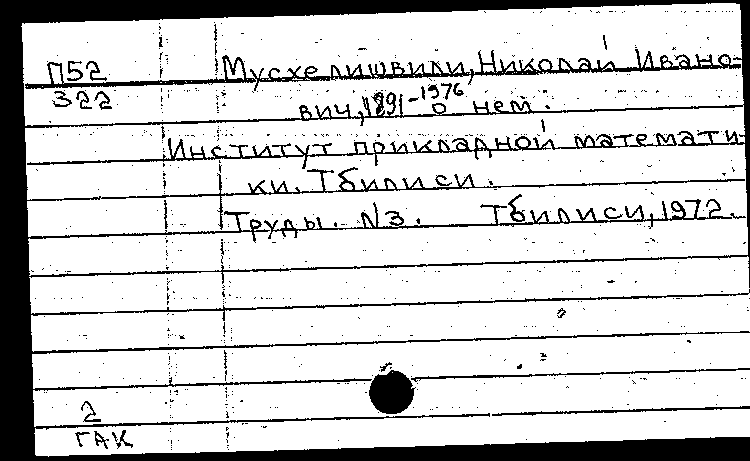 П52
322
Мусхелишвили, Николай Ивано-
вич, 1891-1976 о нем:
Институт прикладной математи-
ки. Тбилиси.
Труды. N3. Тбилиси, 1972.
2
ГАК